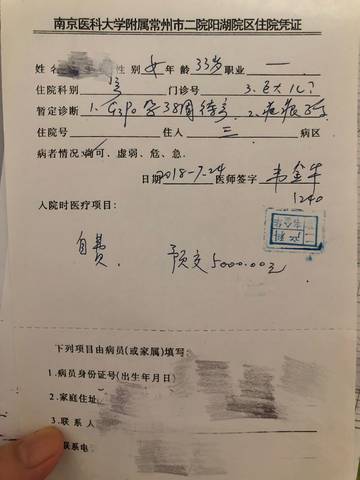 南京医科大学附属常州市二院阳湖院区住院凭证
姓名 性别 女 年龄 33岁 职业 一
住院科别 产 门诊号 3.巨大儿?
暂定诊断 1.G3P0孕38周待产 2.疤痕子宫
住院号 住入 三 病区
病者情况:尚可、虚弱、危、急.
日期 2018-7-24 医师签字
1240
入院时医疗项目:
自费. 预交5000.00元
下列项目由病员(或家属)填写:
1.病员身份证号(出生年月日)
2.家庭住址
3.联系人
联系电